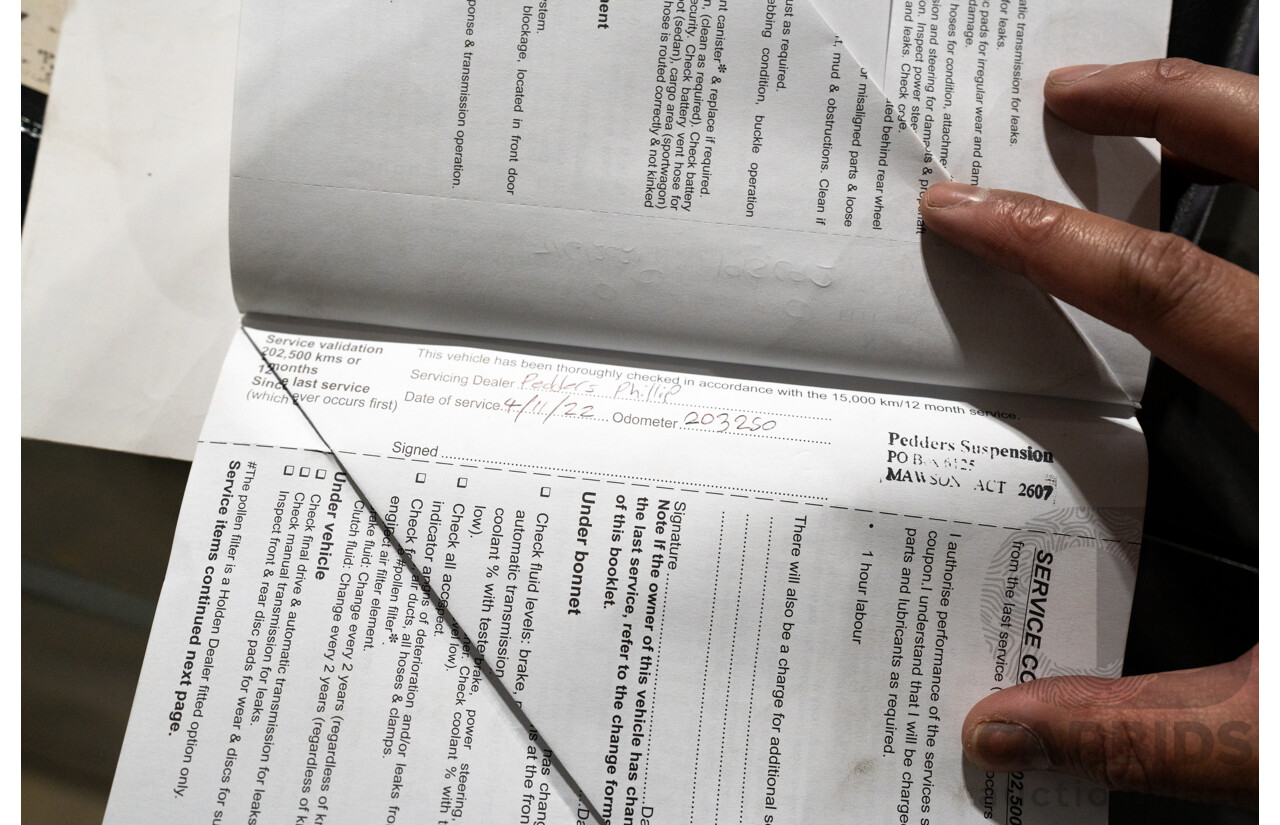 atic transmission for leaks.
for leaks.
c pads for irregular wear and dam
damage.
hoses for condition, attachme
sion and steering for dam
on. Inspect power stee
and leaks. Check
behind rear wheel
or misaligned parts & loose
, mud & obstructions. Clean if
ust as required.
ebbing condition, buckle operation
nt canister* & replace if required.
n, (clean as required). Check battery
ecurity. Check battery vent hose for
ot (sedan), cargo area (sportwagon)
hose is routed correctly & not kinked
ment
ystem.
blockage, located in front door
ponse & transmission operation.
Service validation
202,500 kms or
12 months
Since last service
(which ever occurs first)
This vehicle has been thoroughly checked in accordance with the 15,000 km/12 month service.
Servicing Dealer Pedders Phillip
Date of service 4/11/22 Odometer 203250
Signed
Pedders Suspension
PO Box 6125
MAWSON ACT 2607
SERVICE CO
from the last service (
02,500
occurs
I authorise performance of the services s
coupon. I understand that I will be charge
parts and lubricants as required.
• 1 hour labour
There will also be a charge for additional s
Signature Da
Note If the owner of this vehicle has chan
the last service, refer to the change forms
of this booklet.
Under bonnet
Check fluid levels: brake,
automatic transmission
coolant % with teste
low).
Check all
indicator
Check for air ducts, all hoses & clamps.
of deterioration and/or leaks fro
brake, power steering,
Check coolant % with t
has chang
at the fron
engine air filter element.
#pollen filter*.
Brake fluid: Change every 2 years (regardless of k
Clutch fluid: Change every 2 years (regardless of k
Under vehicle
Check final drive & automatic transmission for leaks
Check manual transmission for leaks.
Inspect front & rear disc pads for wear & discs for su
#The pollen filter is a Holden Dealer fitted option only.
Service items continued next page.